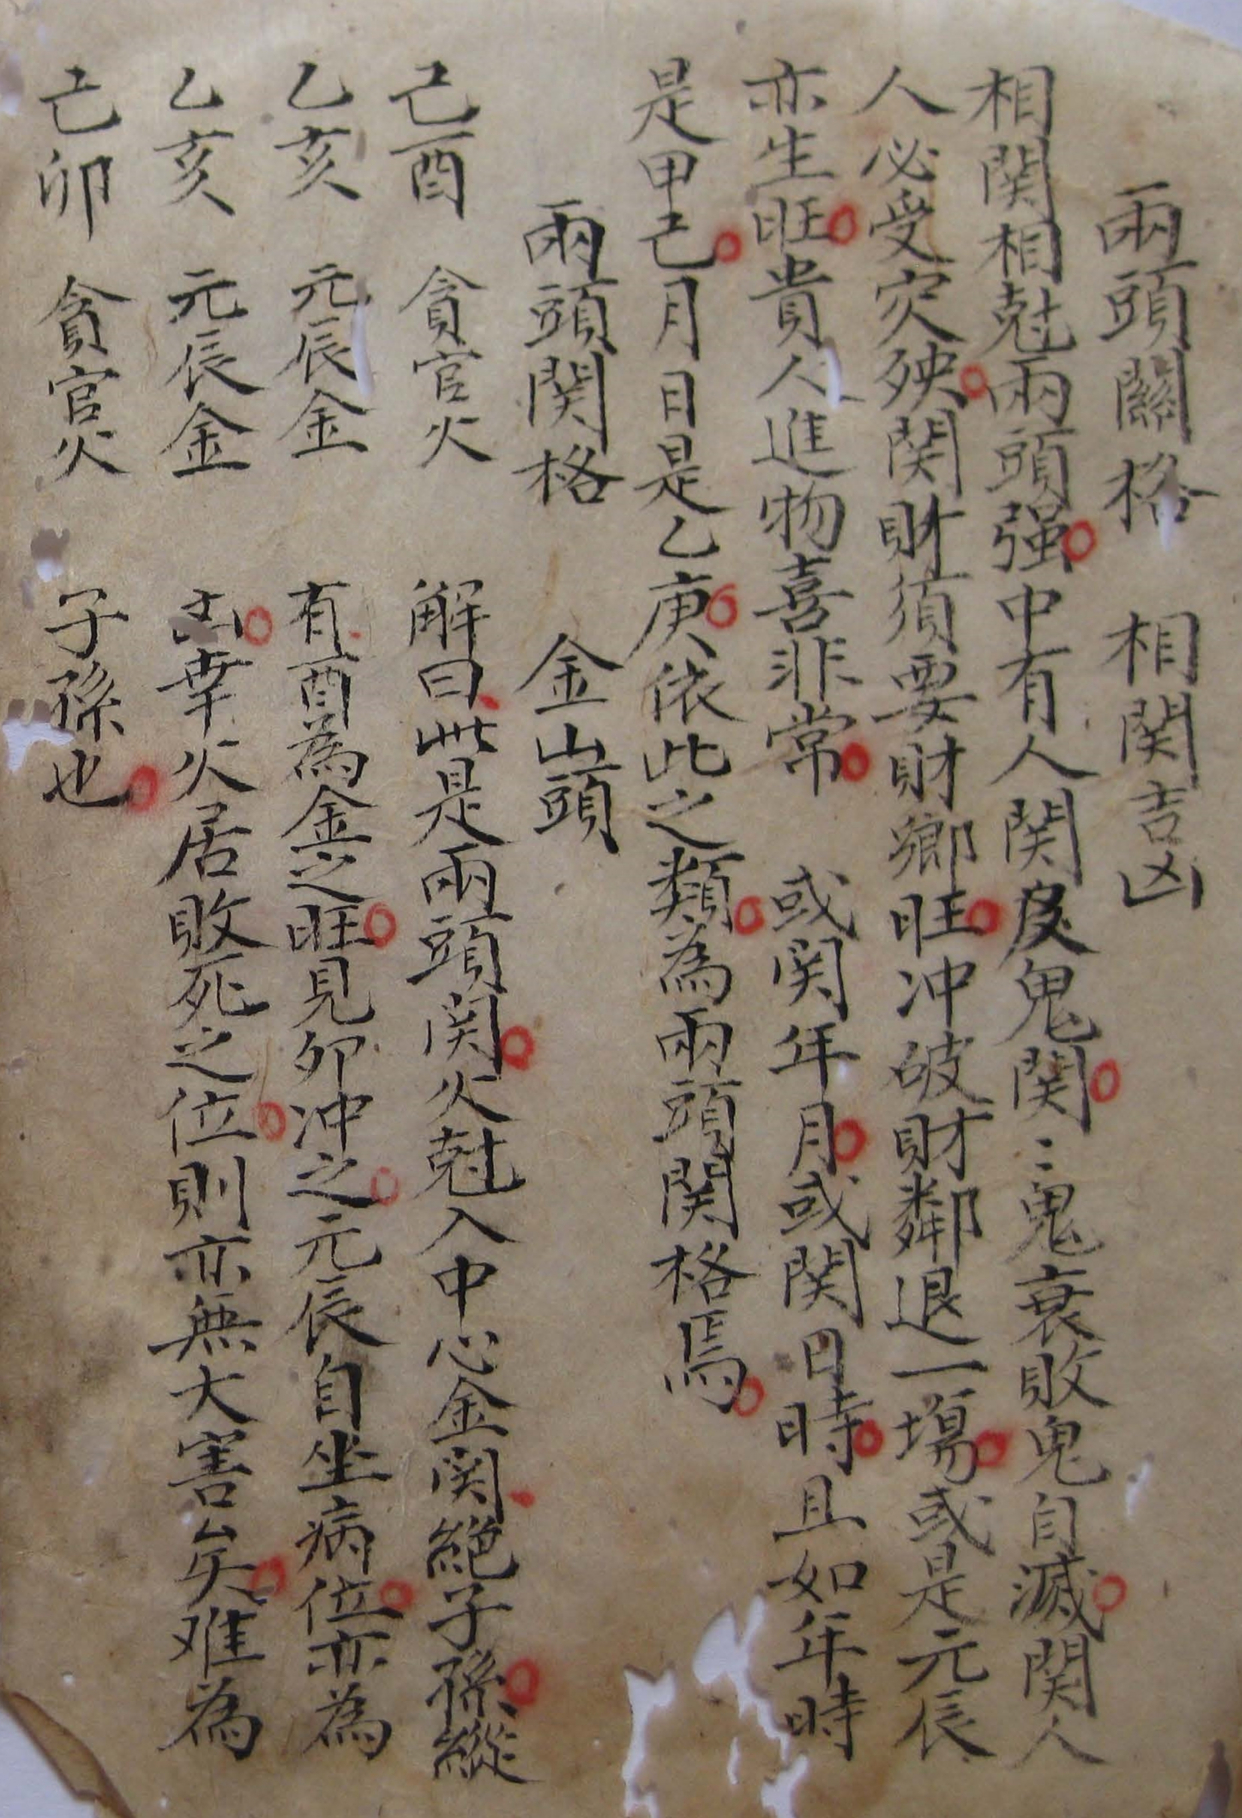 兩頭關格　相関吉凶
相関相尅兩頭强中有人関及鬼関〻鬼衰敗鬼自滅関人
人必受灾殃関財須要財鄉旺冲破財鄰退一塲或是元辰
亦生旺貴人進物喜非常　或関年月或関日時且如年時
是甲己月日是乙庚依此之類為兩頭関格焉
兩頭関格　金山頭
己酉　貪官火　解曰此是兩頭関火尅入中心金関絕子孫縱
乙亥　元辰金　有酉為金之旺見卯冲之元辰自坐病位亦為
乙亥　元辰金　凶幸火居敗死之位則亦無大害矣难為
己卯　貪官火　子孫也